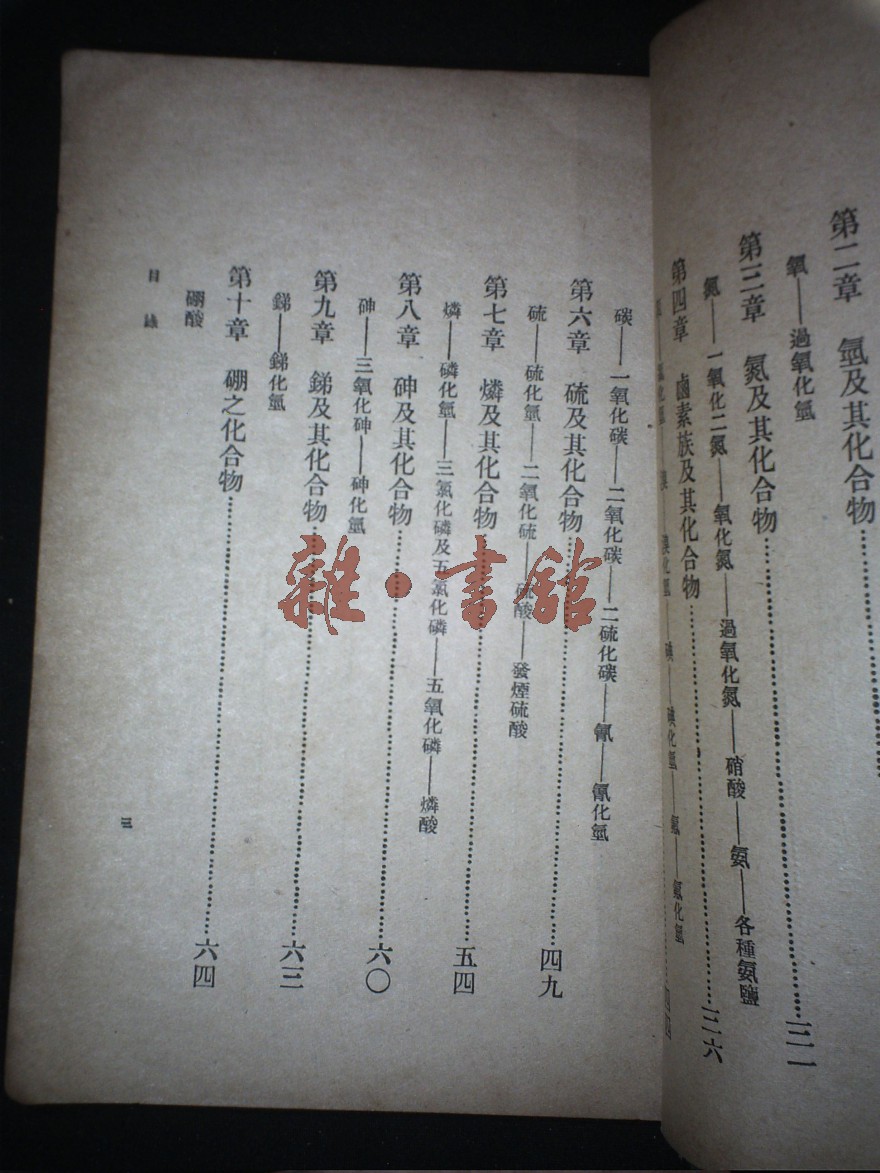 第二章　氫及其化合物
氧——過氧化氫
第三章　氮及其化合物………三一
氮——一氧化二氮——氧化氮——過氧化氮——硝酸——氨——各種氨鹽
第四章　鹵素族及其化合物………三六
碳——一氧化碳——二氧化碳——二硫化碳——氰——氰化氫
第六章　硫及其化合物………四九
硫——硫化氫——二氧化硫——硫酸——發煙硫酸
第七章　燐及其化合物………五四
燐——磷化氫——三氯化磷及五氯化磷——五氧化磷——燐酸
第八章　砷及其化合物………六〇
砷——三氧化砷——砷化氫
第九章　銻及其化合物………六三
銻——銻化氫
第十章　硼之化合物………六四
硼酸
目錄
三
雜·書館